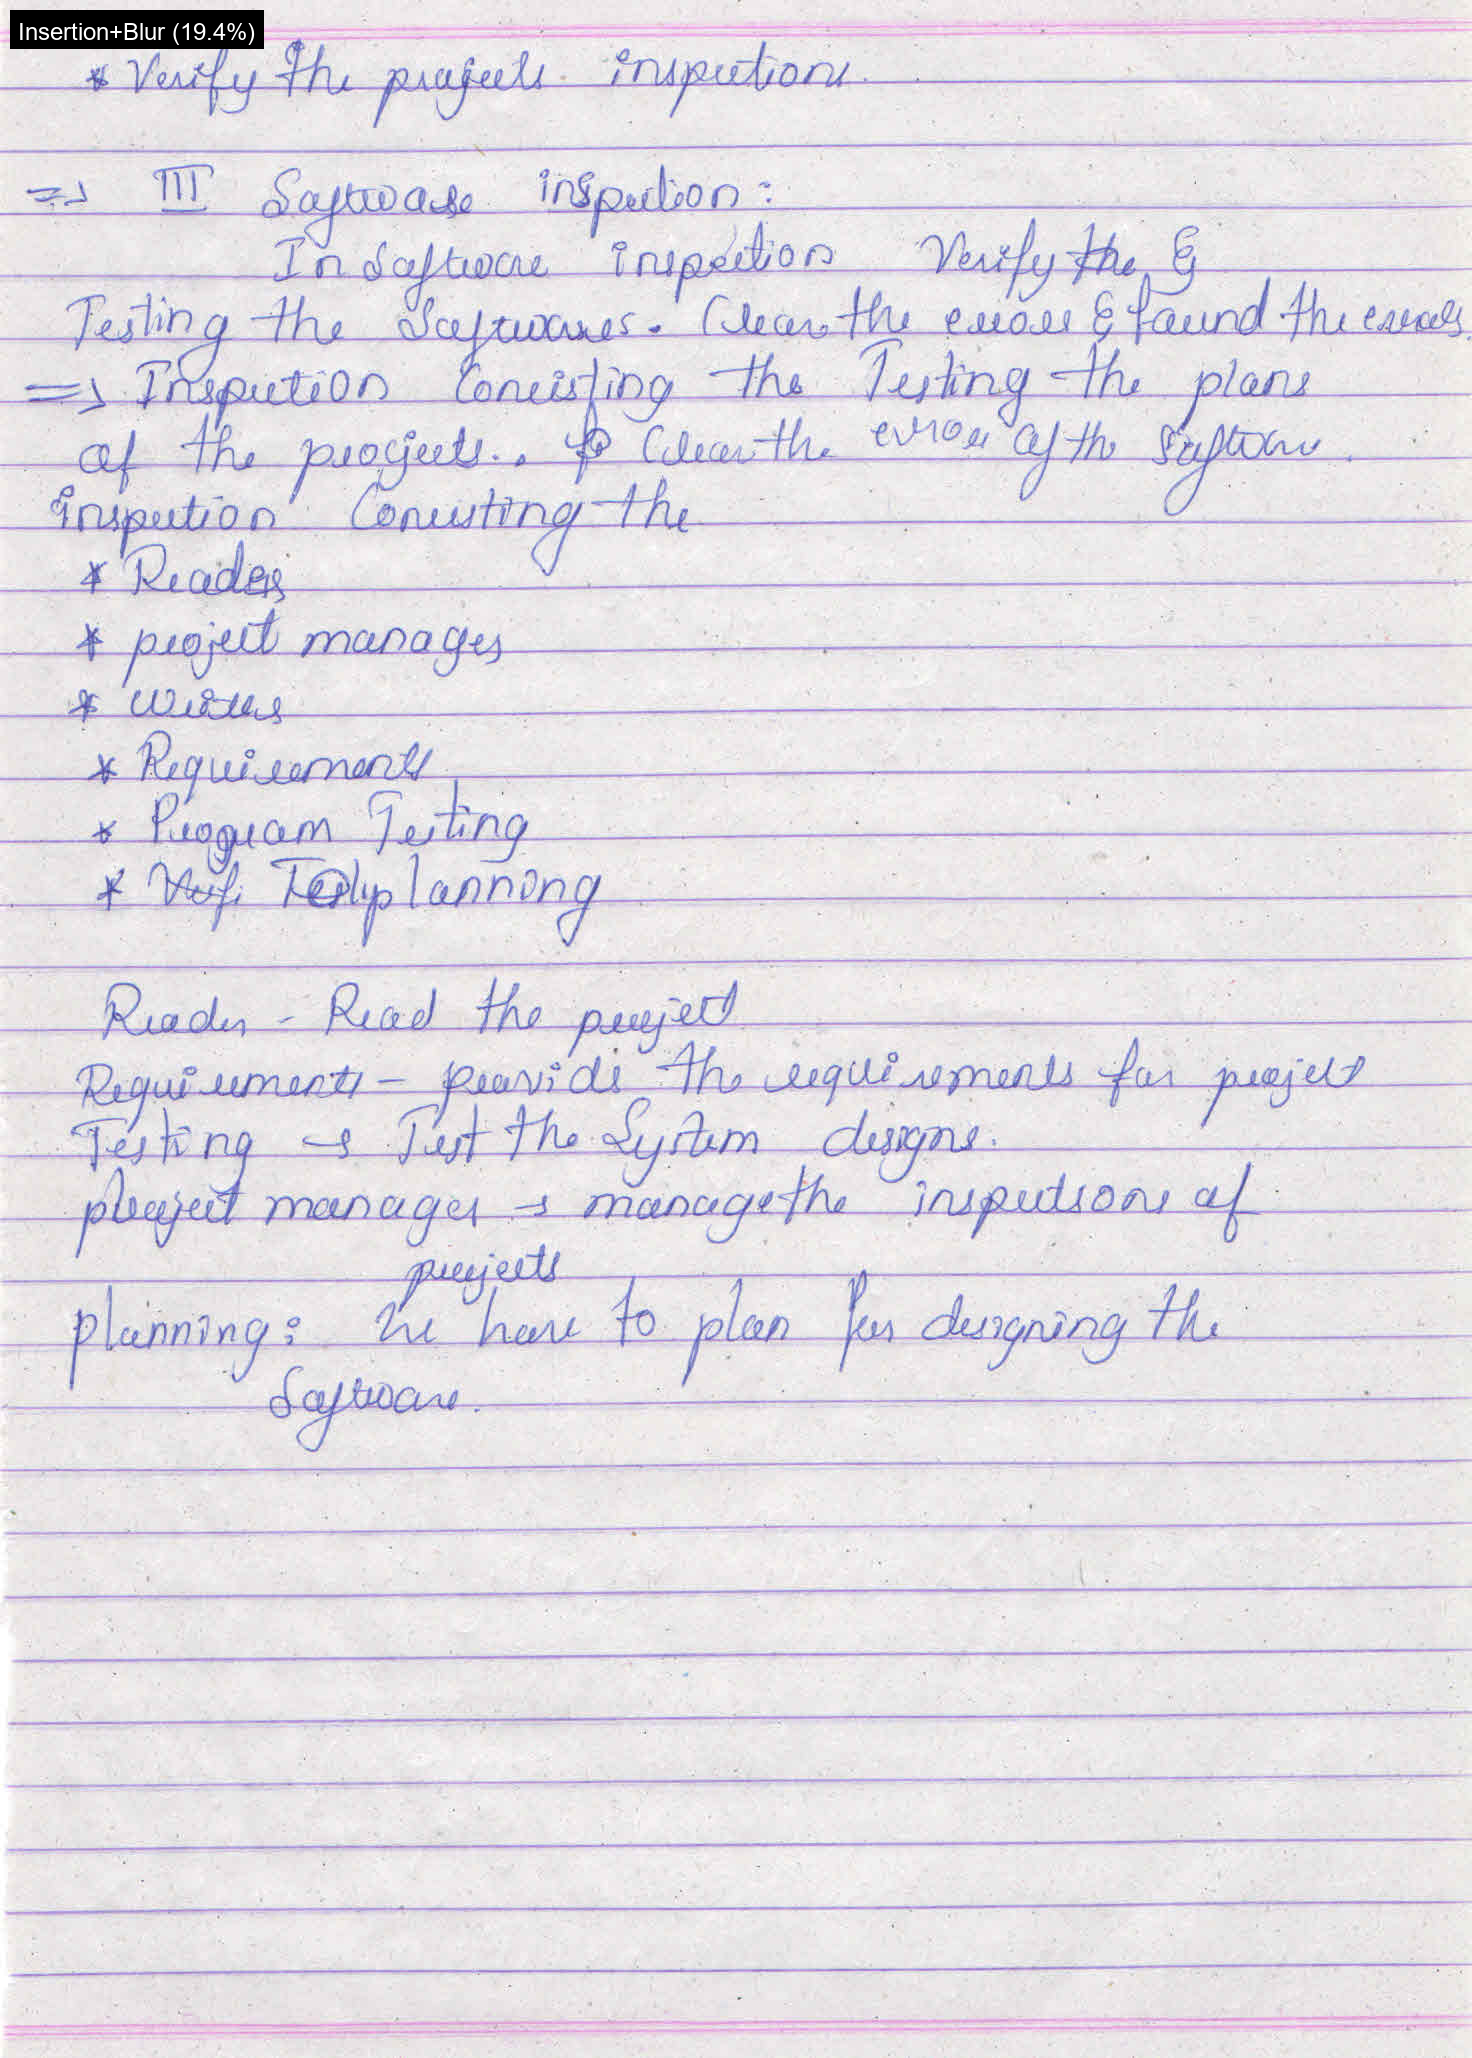 Insertion+Blur (19.4%)
* Verify the projects inspections.
=> III Software inspection:
In Software inspection Verify the &
Testing the Softwares. Clear the errors & found the errors.
=> Inspection Consisting the Testing the plans
of the projects.. Clear the error of the Software.
inspection Consisting the
* Readers
* project manages
* Writers
* Requirements
* Program Testing
* planning
Reader - Read the project
Requirements - provide the requirements for project
Testing → Test the System designs.
project manager → manage the inspections of
projects
planning: We have to plan for designing the
Software.